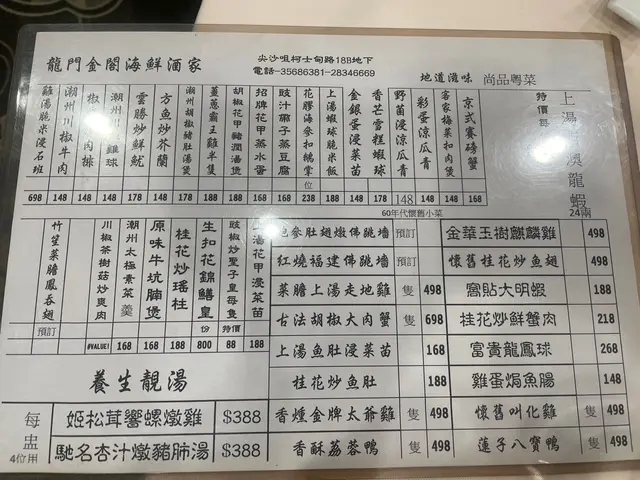 龍門金閣海鮮酒家
尖沙咀柯士甸路18B地下
電話-35686381-28346669
地道滋味 尚品粵菜
雞湯脆米浸石班 698
潮州川椒牛肉 148
椒 肉排 148
潮州 雞球 148
雲勝炒鮮魷 178
方魚炒芥蘭 148
潮州胡椒豬肚湯煲 188
薑蔥霸王雞半隻 188
胡椒花甲豬潤湯煲 188
招牌花甲蒸水蛋 168
豉汁 子蒸豆腐 168
花膠海參扣鵝掌 位 238
上湯蝦球脆米飯 188
金銀蛋浸菜苗 148
香芒雪糕蝦球 168
野菌浸涼瓜青 148
彩蛋涼瓜青 148
客家梅菜扣肉煲 148
京式賽螃蟹 168
特價每
上湯 澳龍蝦
24兩
60年代懷舊小菜
竹笙菜膽鳳吞翅 預訂
川椒茶樹菇炒爽肉 #VALUE!
潮州太極素菜羹 168
原味牛坑腩煲 168
桂花炒瑤柱 188
生扣花錦鱔皇 份 800
豉椒炒聖子皇每隻 特價 88
上湯花甲浸菜苗 188
鮑參肚翅燉佛跳墻 預訂
紅燒福建佛跳墻 預訂
菜膽上湯走地雞 隻 498
古法胡椒大肉蟹 隻 698
上湯魚肚浸菜苗 168
桂花炒魚肚 188
香燻金牌太爺雞 隻 498
香酥荔蓉鴨 隻 498
金華玉樹麒麟雞 498
懷舊桂花炒魚翅 498
窩貼大明蝦 188
桂花炒鮮蟹肉 218
富貴龍鳳球 268
雞蛋焗魚腸 148
懷舊叫化雞 隻 498
蓮子八寶鴨 隻 498
養生靚湯
每盅
4位用
姬松茸響螺燉雞 $388
馳名杏汁燉豬肺湯 $388